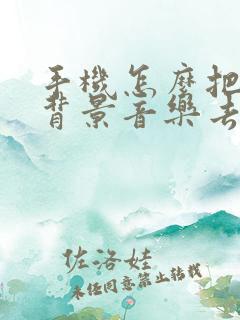 手機怎麼把
背景音樂去
佐洛娃
未经同意禁止转载